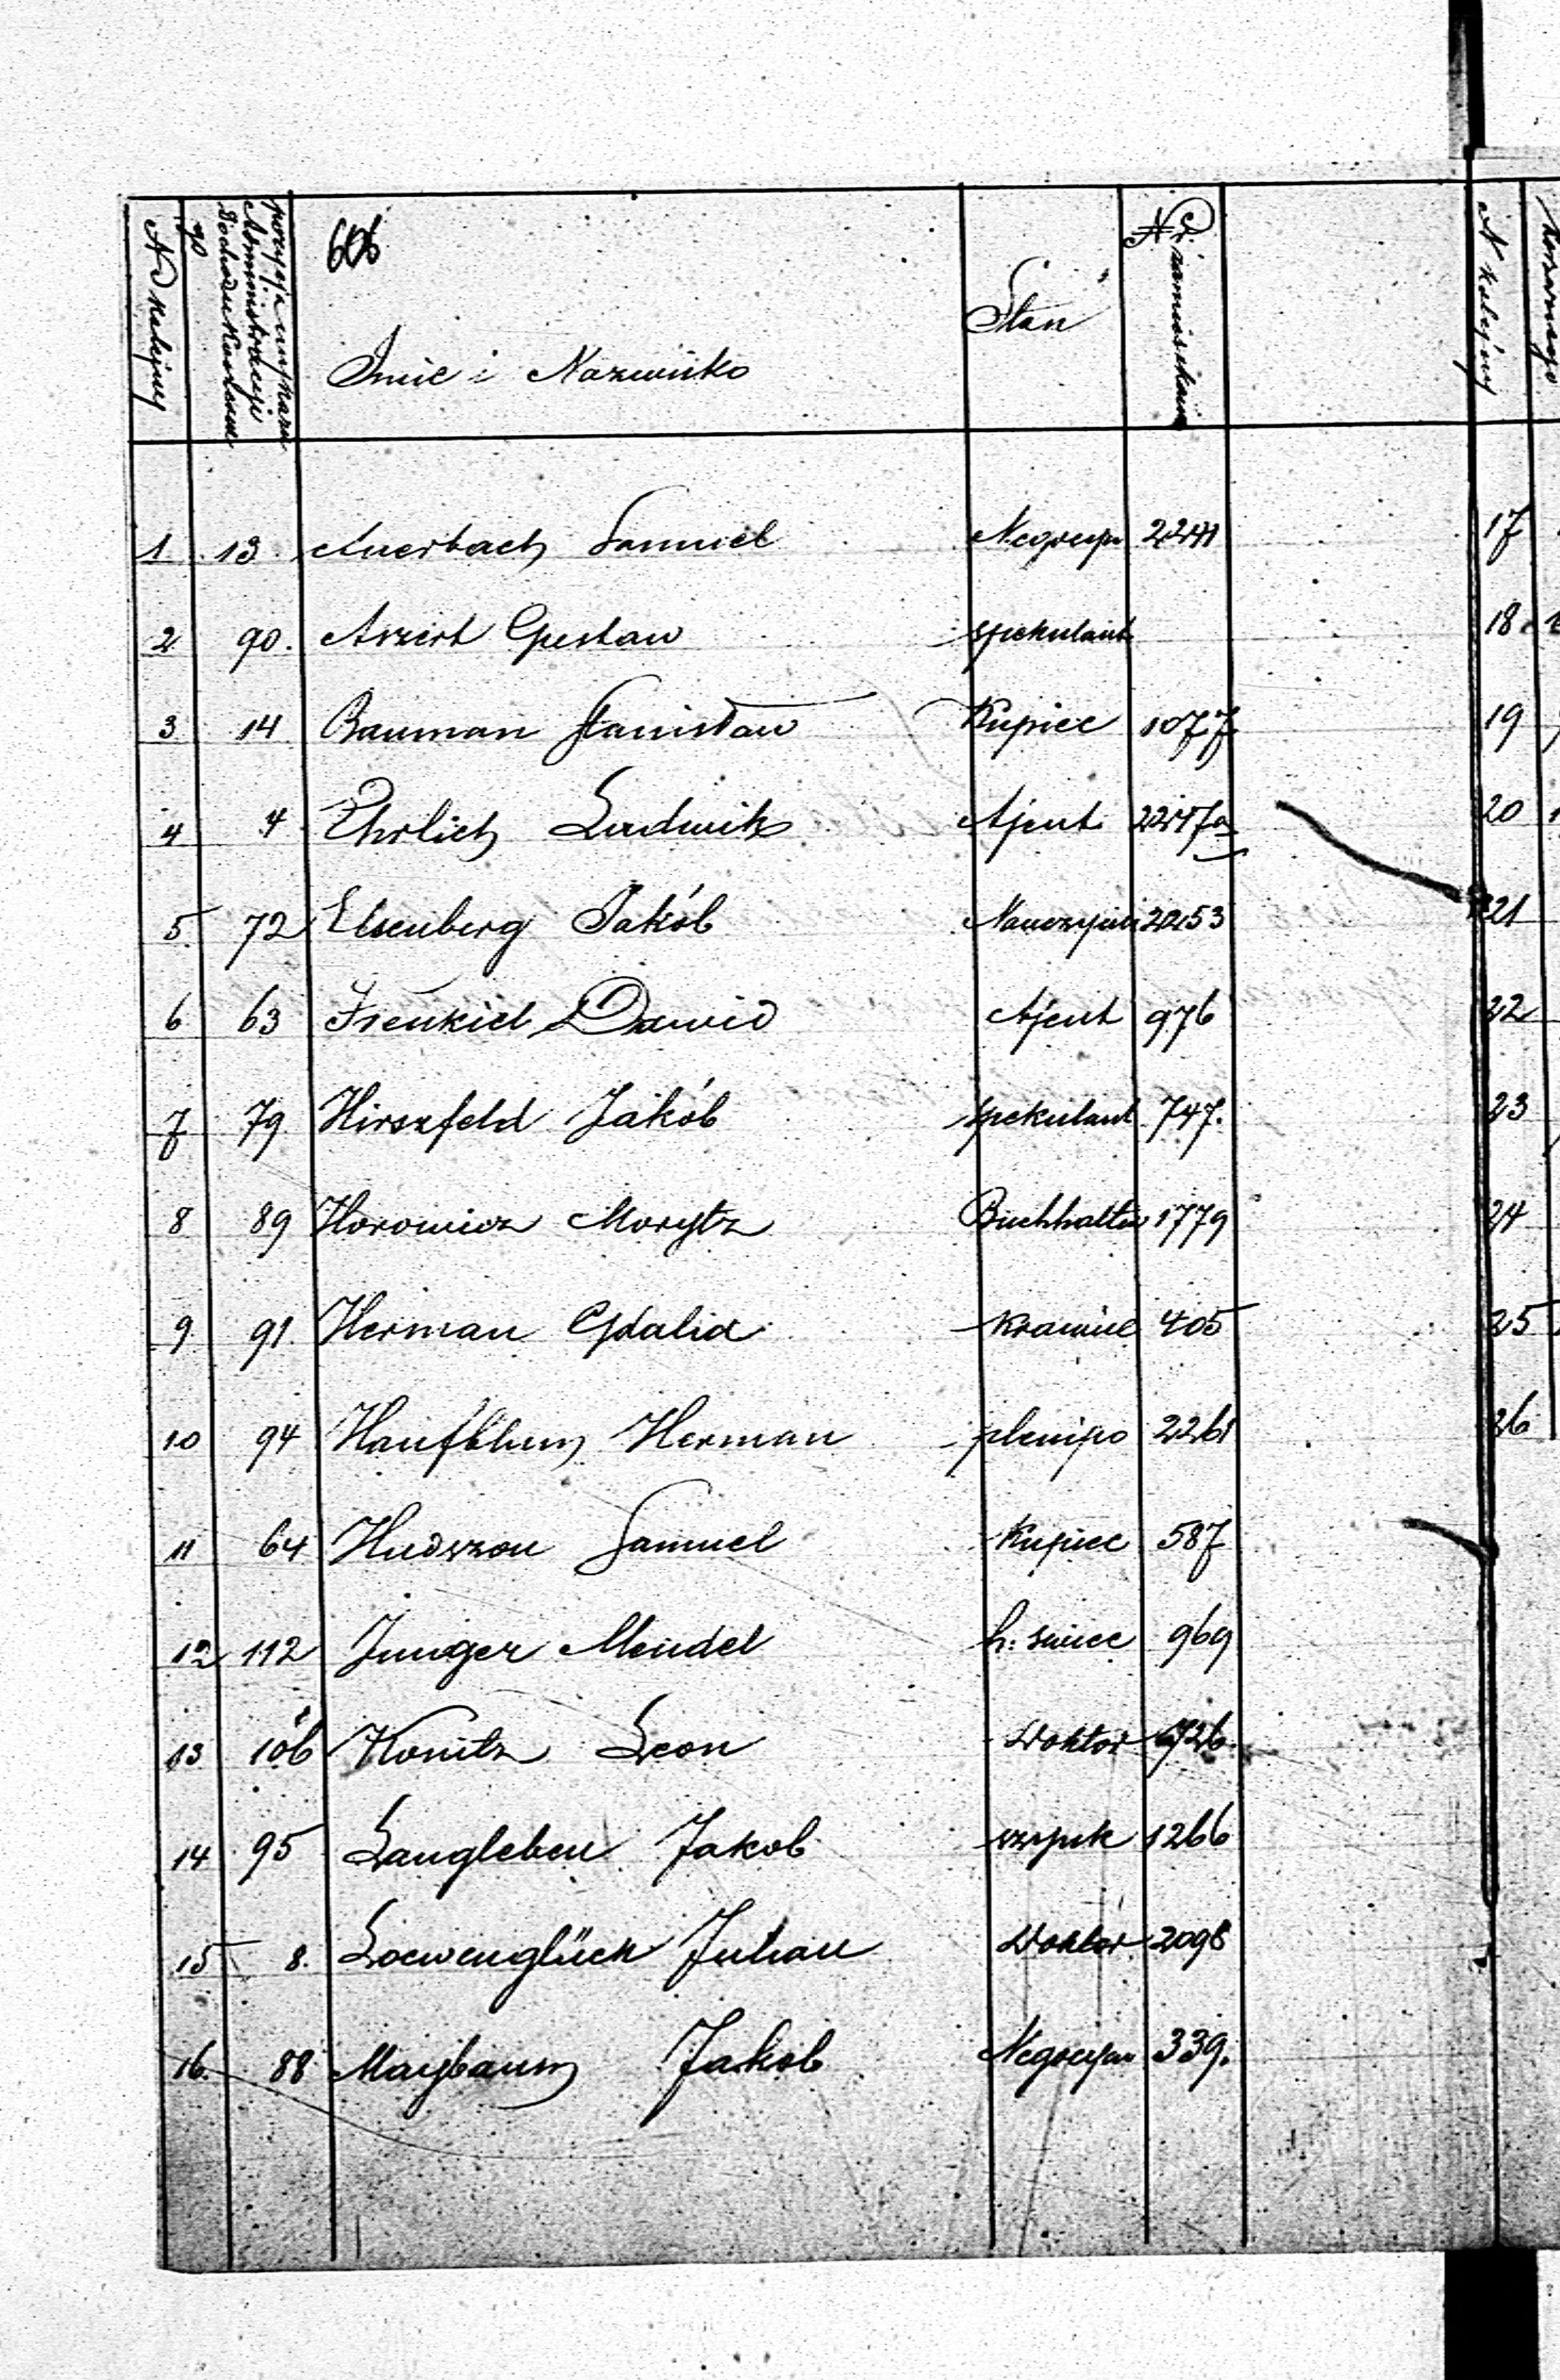 N kolejny
pozycyja wykazu Administracyi Dochodu Koszernego
606
Imie i Nazwisko
Stan
Nr zamieszkania
N kolejny
1 13 Auerbach Samuel Negocyn
2 90. Gustaw spekulant
3 14 Bauman Stanisław Kupiec 1077
4 4 Ehrlich Ludwik Ajent 2247a
5 72 Elsenberg Jakób Nauczyciel 2253
6 63 Frenkiel Dawid Ajent 976
7 79 Hirszfeld Jakób spekulant 747.
8 89 Horowicz Morytz Buchhalter 1779
9 91 Herman Gdalia 405
10 94 Hanfblum Herman plenipo 2261
11 64 Hudszon Samuel Kupiec 587
12 112 Junger Mendel 969
13 106 Konitz Leon Doktor 726.
14 95 Langleben Jakob 1266
15 8. Loewenglück Julian Doktor 2098
16. 88 Maybaum Jakob Negocyn 339.
17
18
19
20
21
22
23
24
25
26